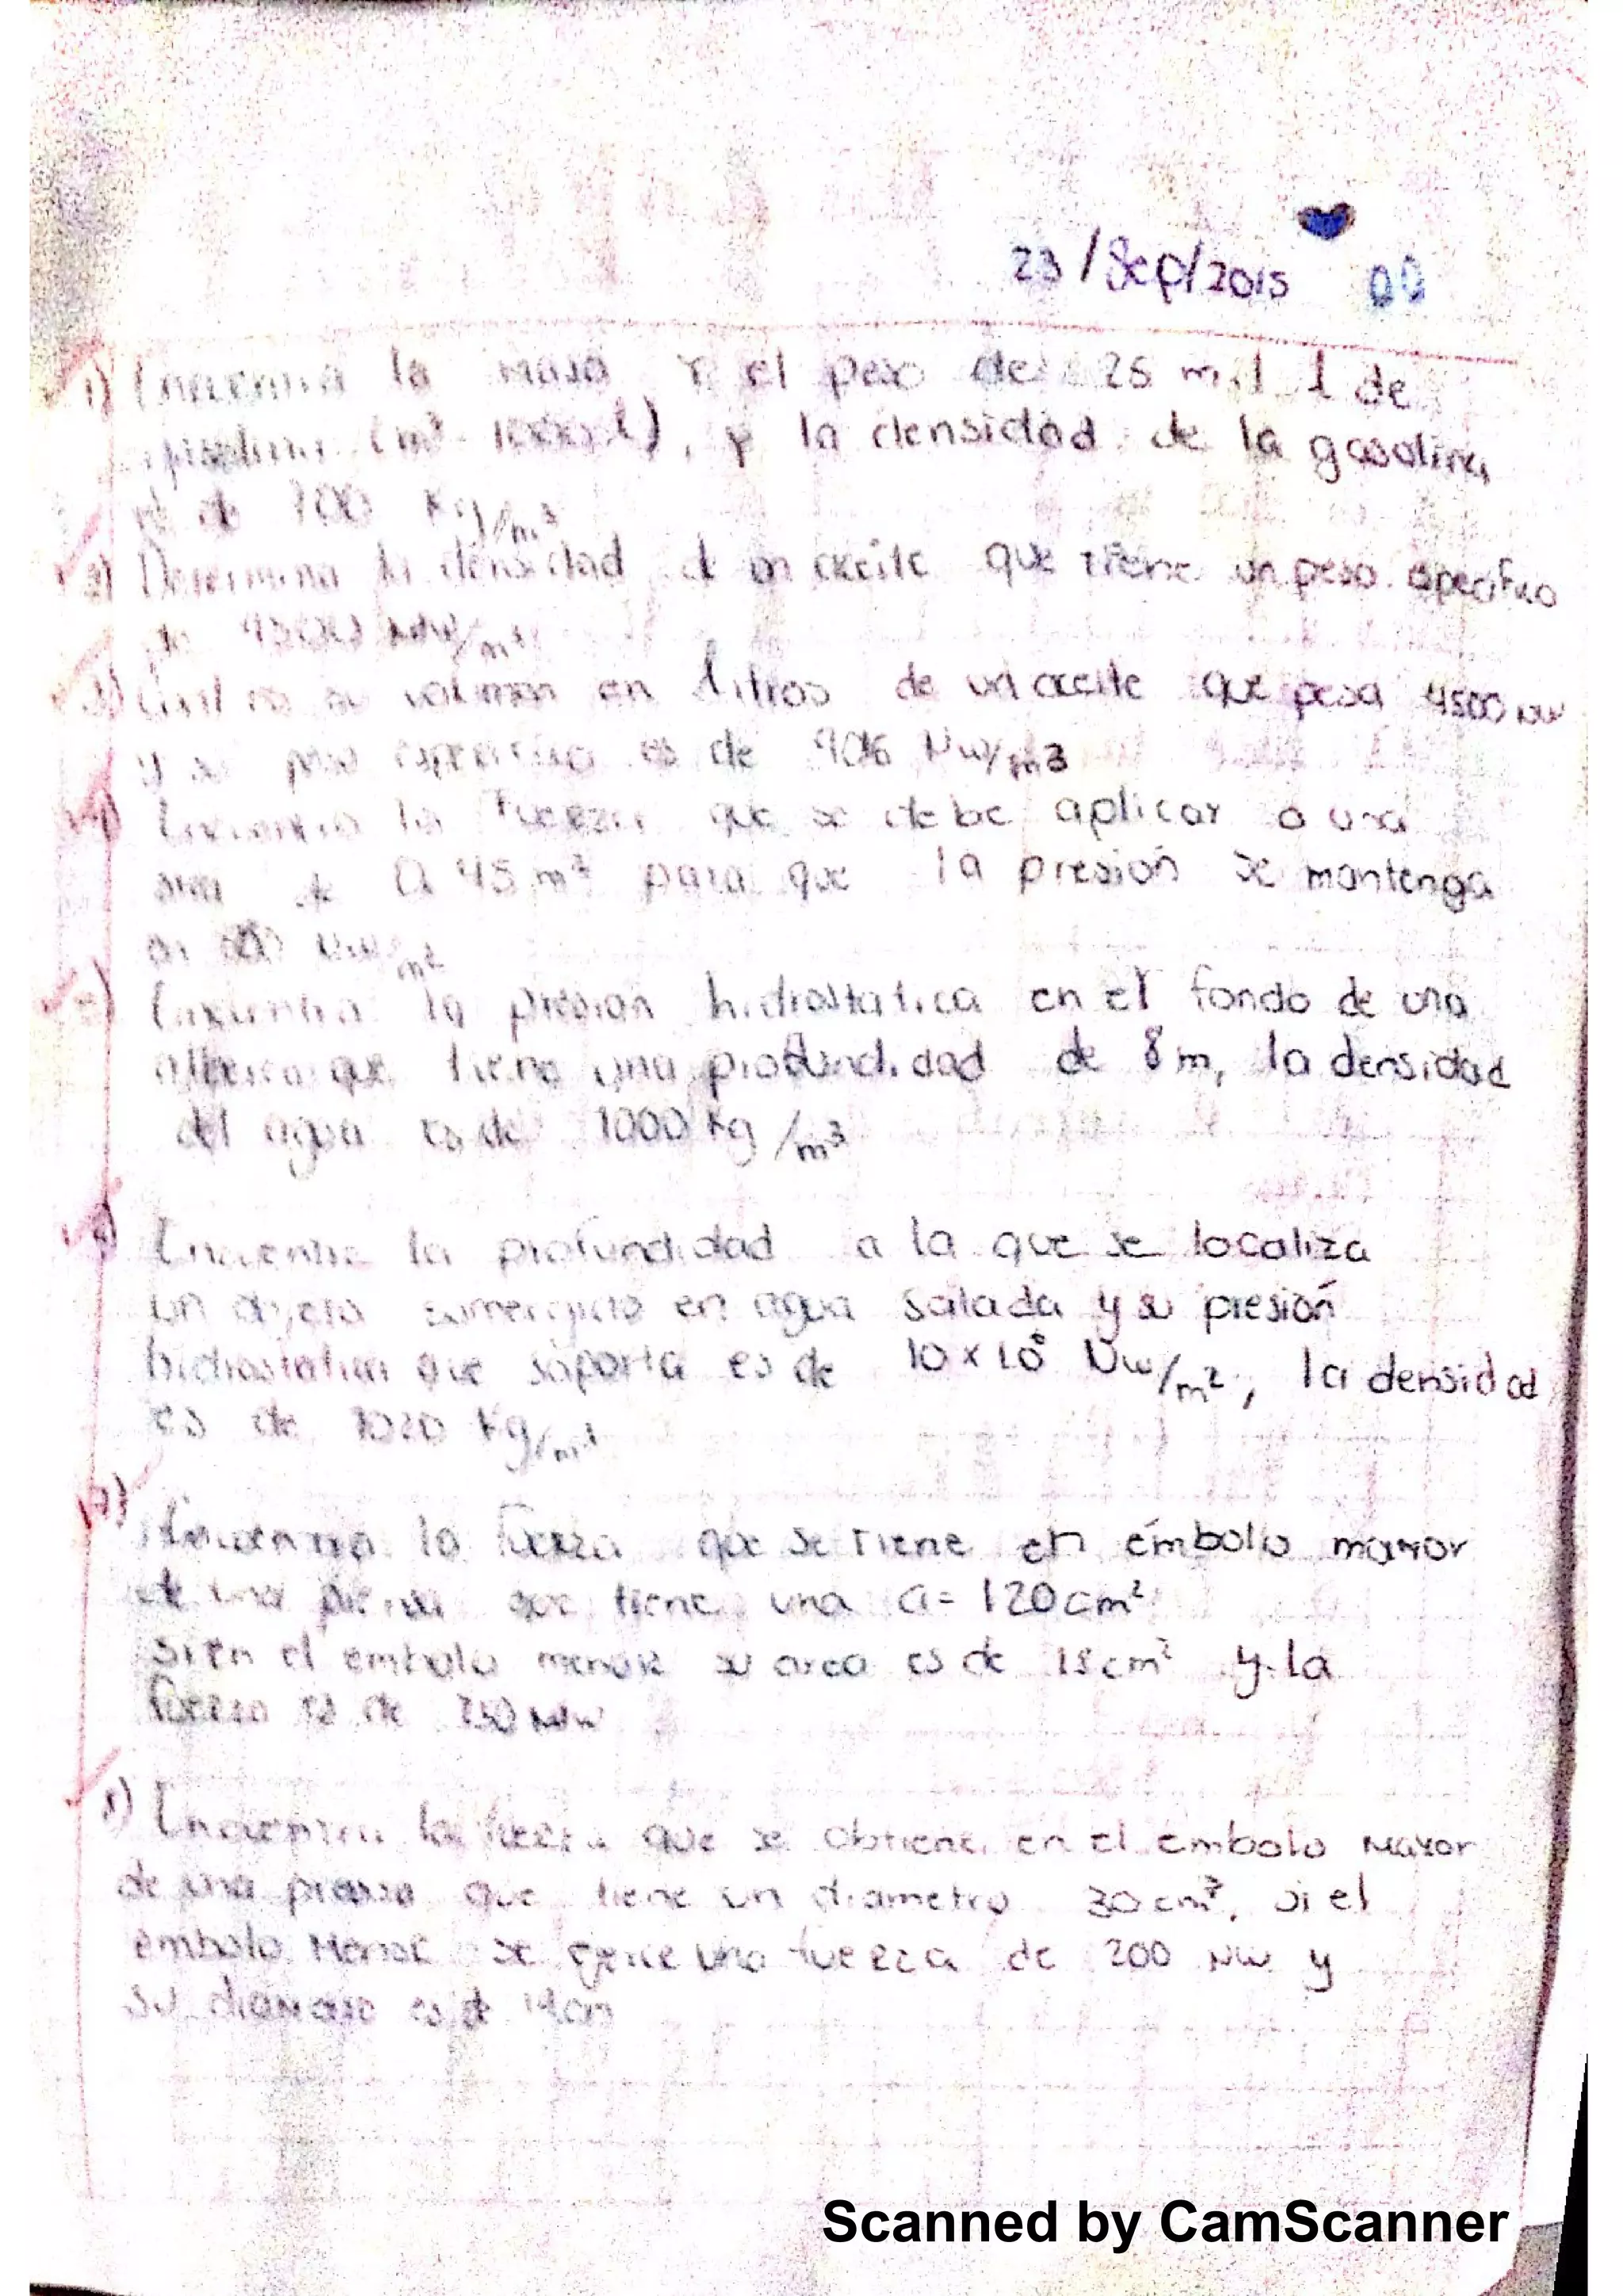 23/Sep/2015
1) Encuentra la masa y el peso de 25 mil l de
gasolina (m³ 1000 l), y la densidad de la gasolina
es de 700 Kg/m³
2) Determina la densidad de un aceite que tiene un peso especifico
de Nw/m³
3) Cual es su volumen en litros de un aceite que pesa 4500 Nw
y su peso especifico es de Nw/m3
4) Encuentra la Fuerza que se debe aplicar a una
area de 0.45 m² para que la presión se mantenga
en Nw/m²
5) Encuentra la presion hidrostatica en el fondo de una
alberca que tiene una profundidad de 8m, la densidad
del agua es de 1000 Kg/m³
6) Encuentra la profundidad a la que se localiza
un objeto sumergido en agua salada y su presión
hidrostatica que soporta es de 10 x 10⁶ Nw/m², la densidad
es de 1020 Kg/m³
7) Encuentra la fuerza que se tiene en émbolo mayor
de una prensa que tiene una a= 120cm²
si en el embolo menor su area es de 15cm² y la
fuerza es de Nw
8) Encuentra la fuerza que se obtiene en el embolo Mayor
de una prensa que tiene un diametro 30 cm², si el
embolo Menor se ejerce una fuerza de 200 Nw y
su diametro es de cm
Scanned by CamScanner